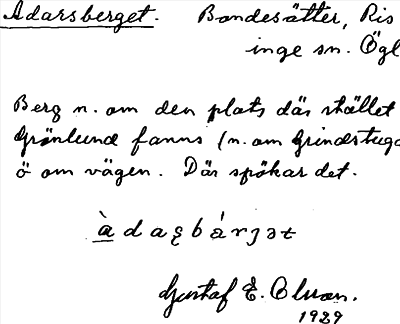 Adarsberget. Bondesätter, Ris
inge sn. Ögl
Berg n. om den plats där stället
Grönlund fanns (n. om Grindstuga
ö om vägen. Där spökar det.
Gustaf E. Olson.
1929